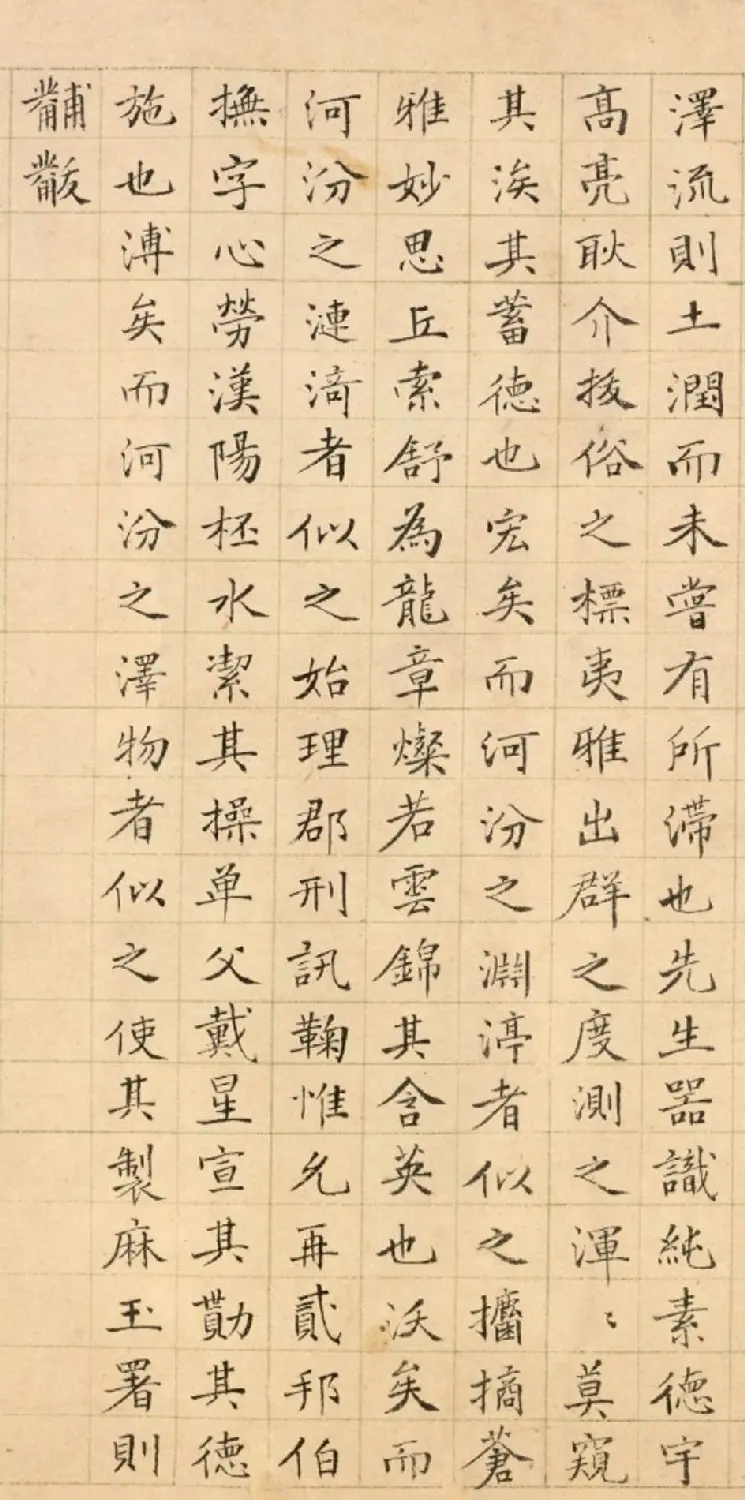 澤流則土潤而未嘗有所滯也先生器識純素德宇
高亮耿介拔俗之標夷雅出群之度測之渾〻莫窺
其涘其蓄德也宏矣而河汾之淵渟者似之攟摘蒼
雅妙思丘索舒為龍章燦若雲錦其含英也沃矣而
河汾之漣漪者似之始理郡刑訊鞠惟允再貳邦伯
撫字心勞漢陽杯水潔其操单父戴星宣其勩其德
施也溥矣而河汾之澤物者似之使其製麻玉署則
黼黻